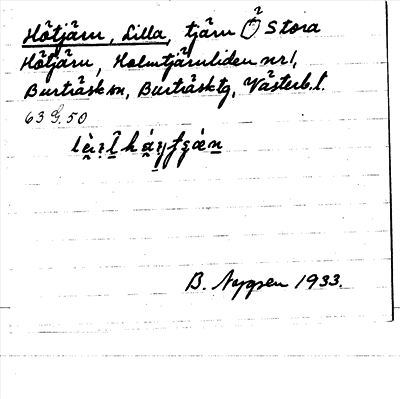 Hötjärn, Lilla, tjärn Ö Stora
Hötjärn, Holmtjärnliden nr 1,
Burträsk sn, Burträsk tg, Västerb. l.
63 50
B. Nygren 1933.